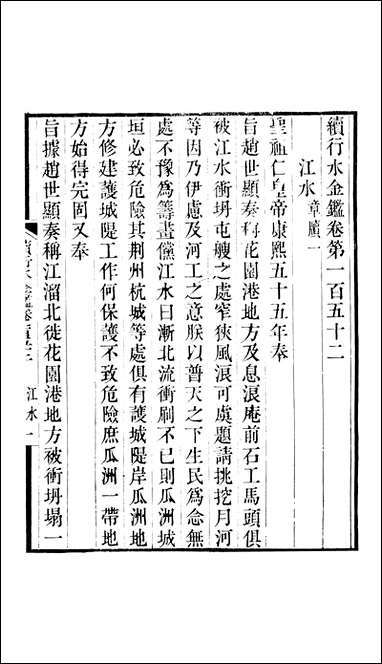 續行水金鑑卷第一百五十二
江水 章牘一
聖祖仁皇帝康熙五十五年奉
旨趙世顯奏稱花園港地方及息浪庵前石工馬頭俱
被江水衝坍屯艘之處窄狹風浪可虞題請挑挖月河
等因乃伊慮及河工之意朕以普天之下生民爲念無
處不豫爲籌畫儻江水日漸北流衝刷不已則瓜洲城
垣必致危險其荆州杭城等處俱有護城隄岸瓜洲地
方修建護城隄工作何保護不致危險庶瓜洲一帶地
方始得完固又奉
旨據趙世顯奏稱江溜北徙花園港地方被衝坍塌一
江水 一